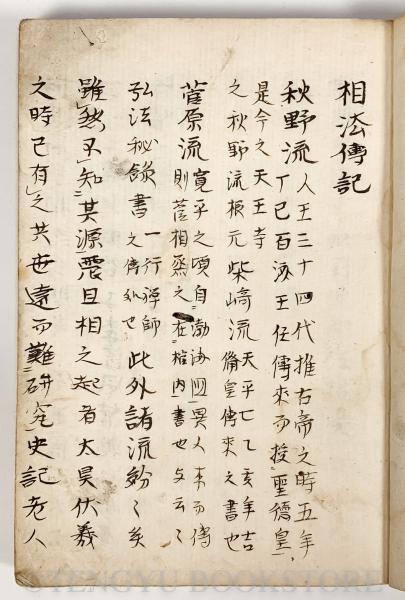 相法傳記
秋野流
人王三十四代推古帝之時五年
丁巳百済王任傳來而授聖德皇
是今之天王寺
之秋野流根元
柴崎流
天平七乙亥年吉
備皇傳來之書也
菅原流
寛平之頃自渤海国異人来而傳
則菅相丞之在棺内書也
弘法秘録書
一行禅師
此外諸流紛〻矣
雖然不知其源震旦相之起者太昊伏羲
之時已有之共世遠而難研究史記老人
©TENGYU BOOKSTORE